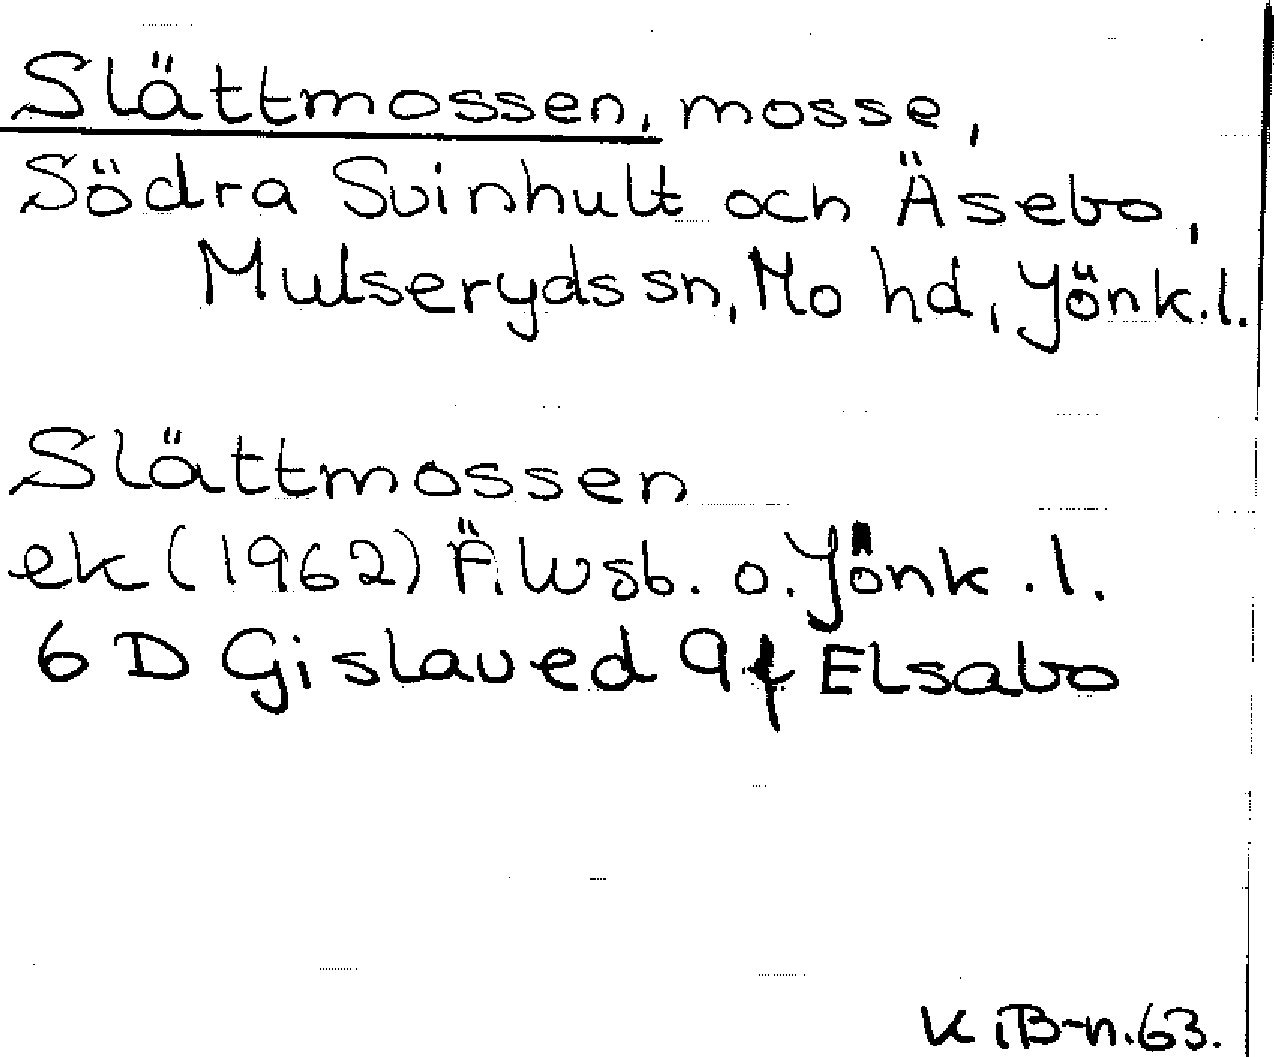 Slättmossen, mosse,
Södra Svinhult och Äsebo,
Mulseryds sn, Mo hd, Jönk.l.
Slättmossen
ek (1962) Ä.lvsb. o. Jönk.l.
6 D Gislaved 9f Elsabo
K iB-n. 63.